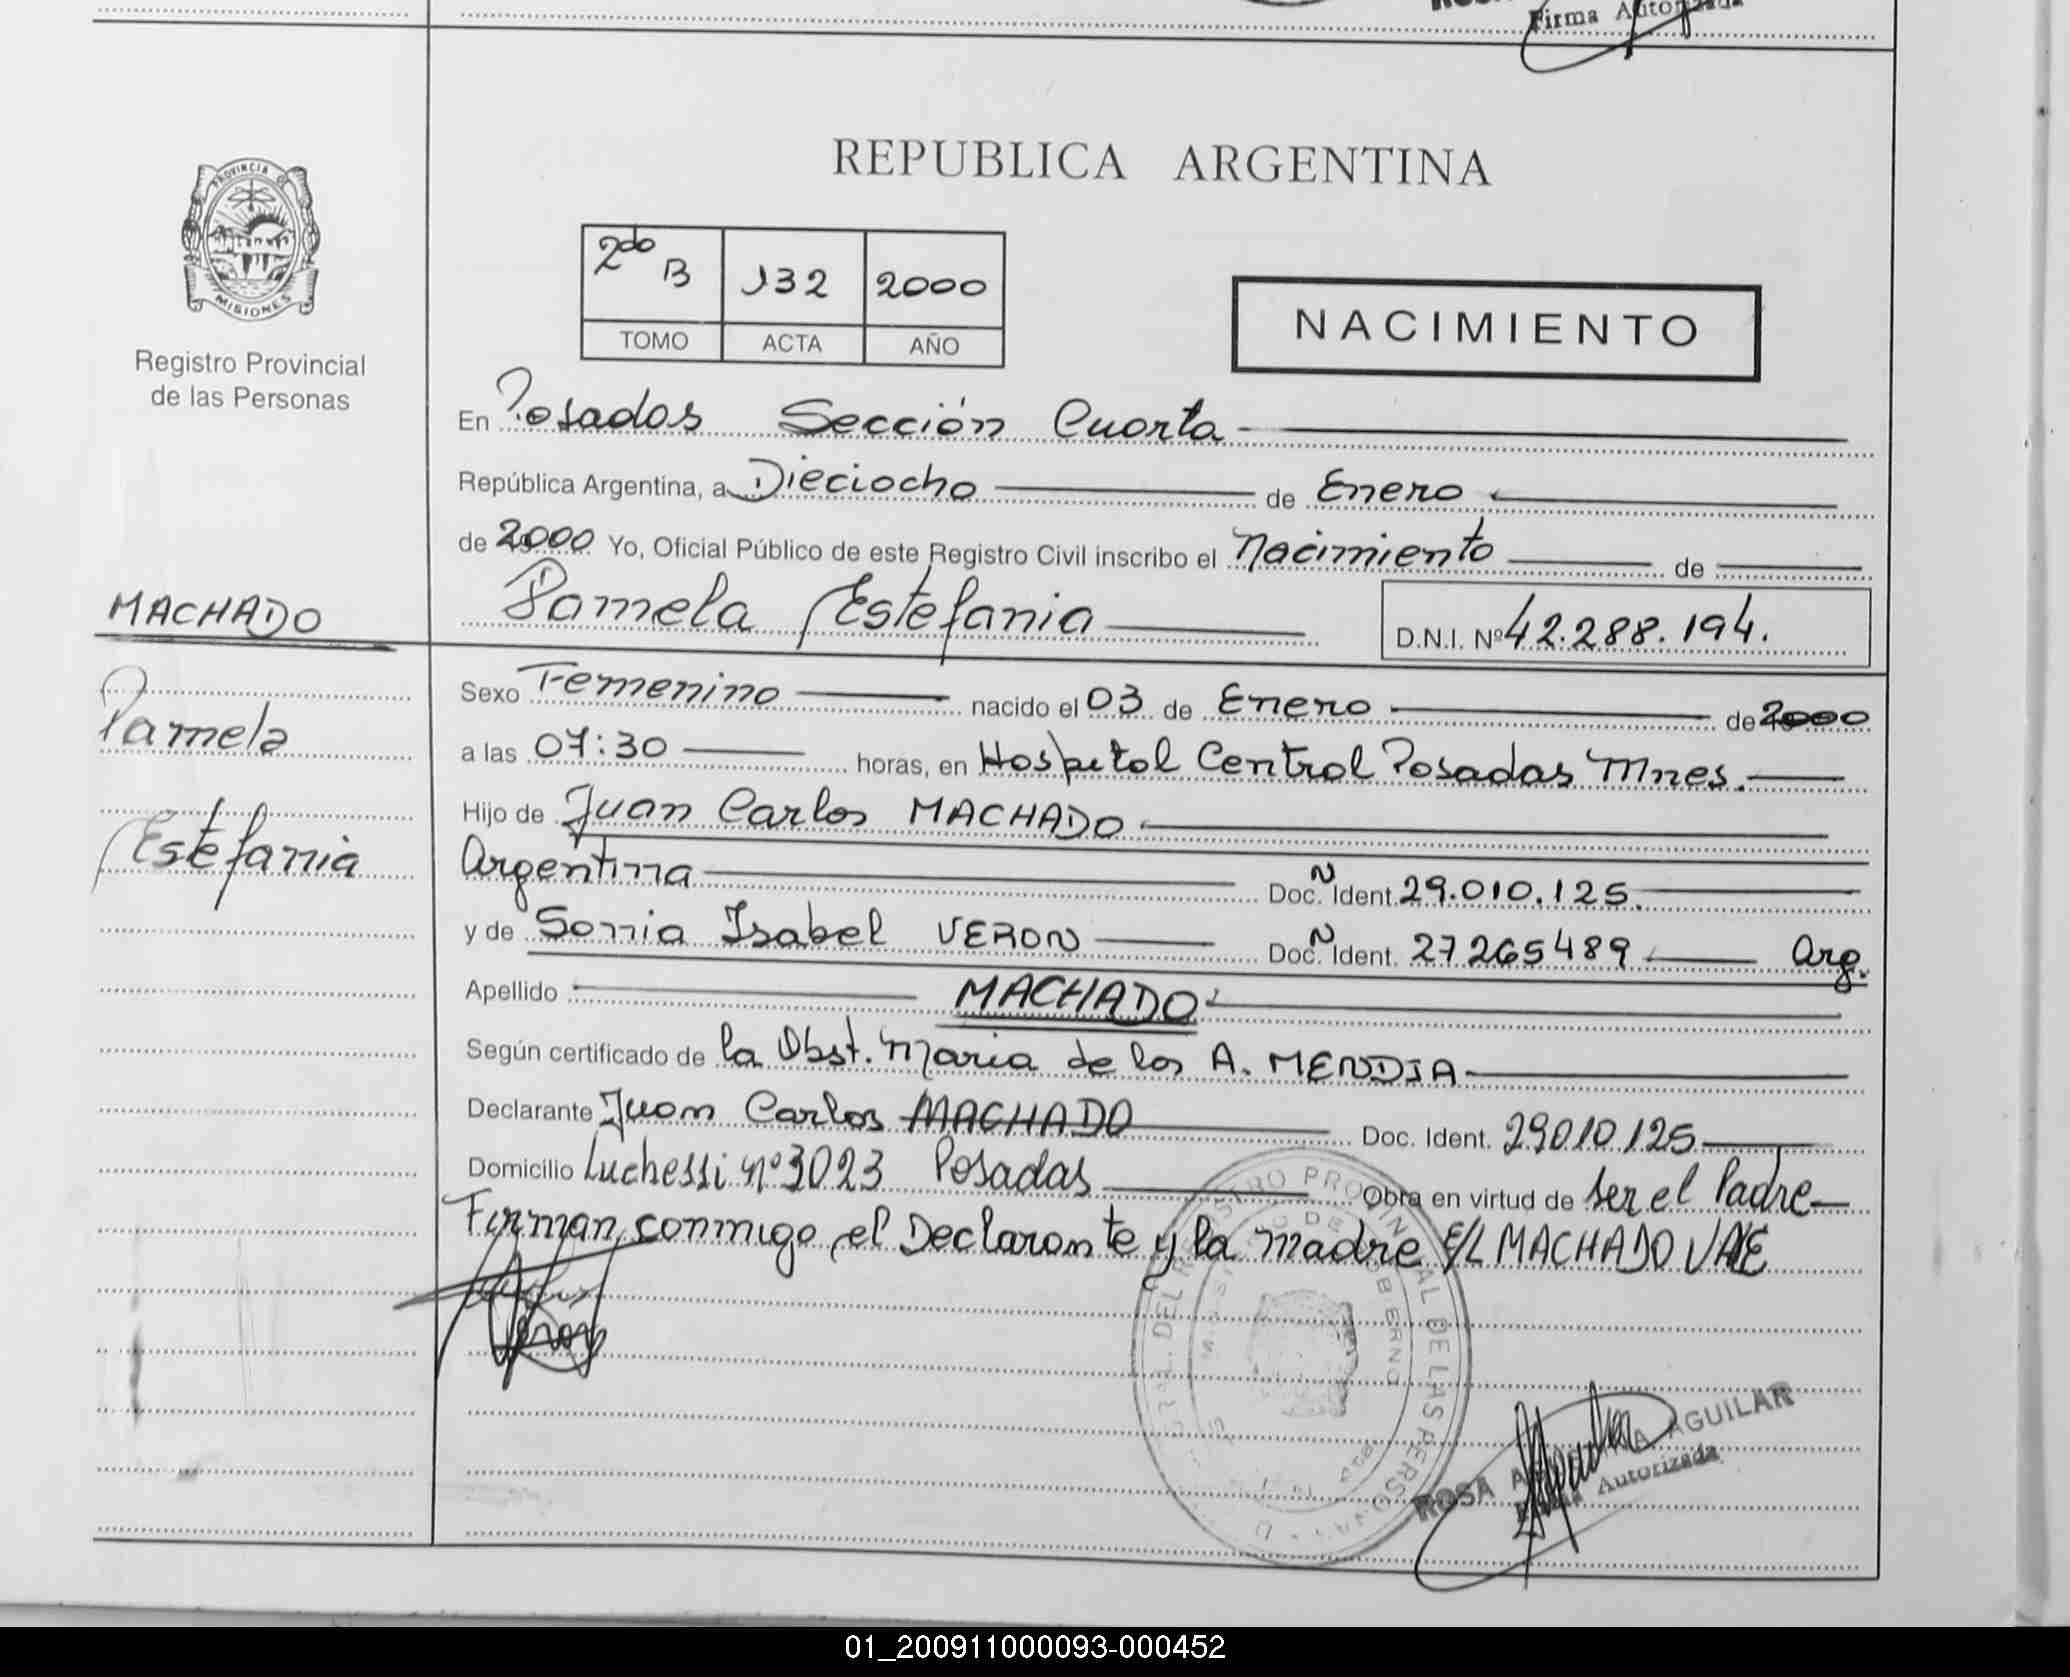 Firma Autorizada
PROVINCIA DE
MISIONES
Registro Provincial
de las Personas
REPUBLICA ARGENTINA
2do B 132 2000
TOMO ACTA AÑO
NACIMIENTO
En Posadas Sección Cuarta
República Argentina, a Dieciocho de Enero
de 2000 Yo, Oficial Público de este Registro Civil inscribo el Nacimiento de
MACHADO
Pamela Estefania D.N.I. Nº 42.288.194.
Pamela
Estefania
Sexo Femenino nacido el 03 de Enero de 2000
a las 07:30 horas, en Hospital Central Posadas Mnes.
Hijo de Juan Carlos MACHADO
Argentina Doc. N Ident. 29.010.125.
y de Sonia Isabel VERON Doc. N Ident. 27265489 Arg.
Apellido MACHADO
Según certificado de la Obst. Maria de los A. MENDIA
Declarante Juan Carlos MACHADO Doc. Ident. 29010125
Domicilio Luchessi nº 3023 Posadas Obra en virtud de ser el Padre
Firman conmigo el Declarante y la Madre E/L MACHADO VALE
ROSA AGUILAR
Firma Autorizada
01_200911000093-000452